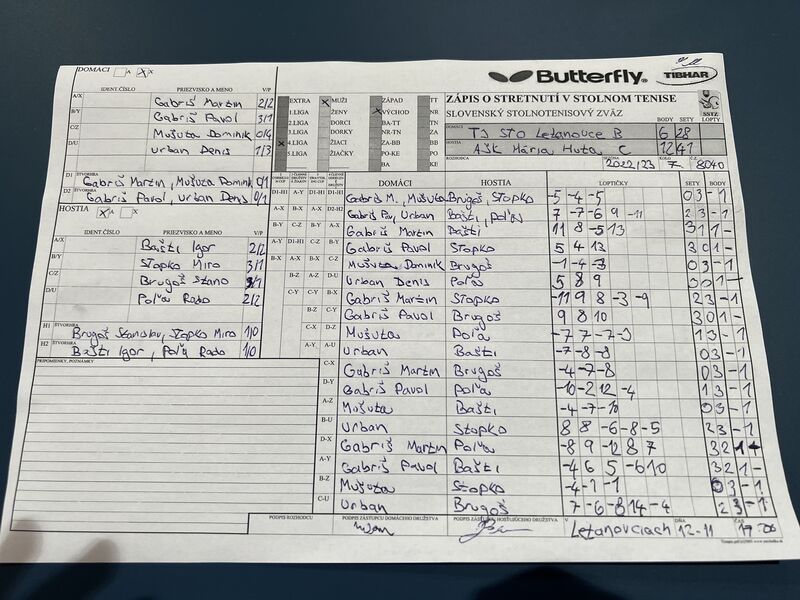 DOMÁCI A X
Butterfly TIBHAR
IDENT.ČÍSLO PRIEZVISKO A MENO V/P
A/X Gabriš Martin 2/2
B/Y Gabriš Pavol 3/1
C/Z Mušuta Dominik 0/4
D/U Urban Denis 1/3
D1 ŠTVORHRA Gabriš Martin, Mušuta Dominik 0/1
D2 ŠTVORHRA Gabriš Pavol, Urban Denis 0/1
HOSTIA A X
IDENT.ČÍSLO PRIEZVISKO A MENO V/P
A/X Bašti Igor 2/2
B/Y Stopko Miro 3/1
C/Z Brugoš Stano
D/U Poľa Rado 2/2
H1 ŠTVORHRA Brugoš Stanislav, Stopko Miro 1/0
H2 ŠTVORHRA Bašti Igor, Poľa Rado 1/0
PRIPOMIENKY, POZNÁMKY
EXTRA X MUŽI ZÁPAD TT
1.LIGA ŽENY X VÝCHOD NR
2.LIGA DORCI BA-TT BY
3.LIGA DORKY NR-TN ZA
X 4.LIGA ŽIACI ZA-BB BB
5.LIGA ŽIAČKY PO-KE PO
BA KE
ZÁPIS O STRETNUTÍ V STOLNOM TENISE
SLOVENSKÝ STOLNOTENISOVÝ ZVÄZ
SSTZ
BODY SETY LOPTY
DOMÁCI TJ STO Letanovce B 6 28
HOSTIA AŠK Mária Huta C 12 41
ROZHODCA SEZÓNA 2022/23 KOLO 7 Č. 8040
DOMÁCI HOSTIA LOPTIČKY SETY BODY
D1-H1 Gabriš M., Mušuta Brugoš, Stopko -5 -4 -5 0 3 - 1
D2-H2 Gabriš Pav, Urban Bašti, Poľa 7 -7 -6 9 -11 2 3 - 1
A-X Gabriš Martin Bašti 11 8 -5 13 3 1 1 -
B-Y Gabriš Pavol Stopko 5 4 13 3 0 1 -
C-Z Mušuta Dominik Brugoš -1 -4 -3 0 3 - 1
D-U Urban Denis Poľa 5 8 9
B-X Gabriš Martin Stopko -11 9 8 -3 -9 2 3 - 1
Gabriš Pavol Brugoš 9 8 10 3 0 1 -
Mušuta Poľa -7 7 -7 -3 1 3 - 1
Urban Bašti -7 -8 -8 0 3 - 1
C-X Gabriš Martin Brugoš -4 -7 -8 0 3 - 1
D-Y Gabriš Pavol Poľa -10 -2 12 -4 1 3 - 1
A-Z Mušuta Bašti -4 -7 -10 0 3 - 1
B-U Urban Stopko 8 8 -6 -8 -5 2 3 - 1
D-X Gabriš Martin Poľa -8 9 -12 8 7 3 2 1 -
A-Y Gabriš Pavol Bašti -4 6 5 -6 10 3 2 1 -
B-Z Mušuta Stopko 0 3 - 1
C-U Urban Brugoš 7 -6 -8 14 -4 2 3 - 1
PODPIS ROZHODCU PODPIS ZÁSTUPCU DOMÁCEHO DRUŽSTVA PODPIS ZÁSTUPCU HOSŤUJÚCEHO DRUŽSTVA V Letanovciach DŇA 12-11 ČAS